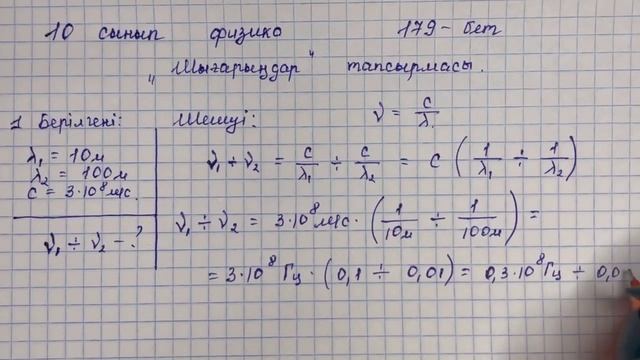 10 сынып физика 179-бет
"Шығарыңдар" тапсырмасы.
1 Берілгені:
λ₁ = 10м
λ₂ = 100м
c = 3·10⁸ м/с.
ν₁ ÷ ν₂ - ?
Шешуі: ν = c/λ.
ν₁ ÷ ν₂ = c/λ₁ ÷ c/λ₂ = c (1/λ₁ ÷ 1/λ₂)
ν₁ ÷ ν₂ = 3·10⁸ м/с · (1/10м ÷ 1/100м) =
= 3·10⁸ Гц · (0,1 ÷ 0,01) = 0,3·10⁸ Гц ÷ 0,0